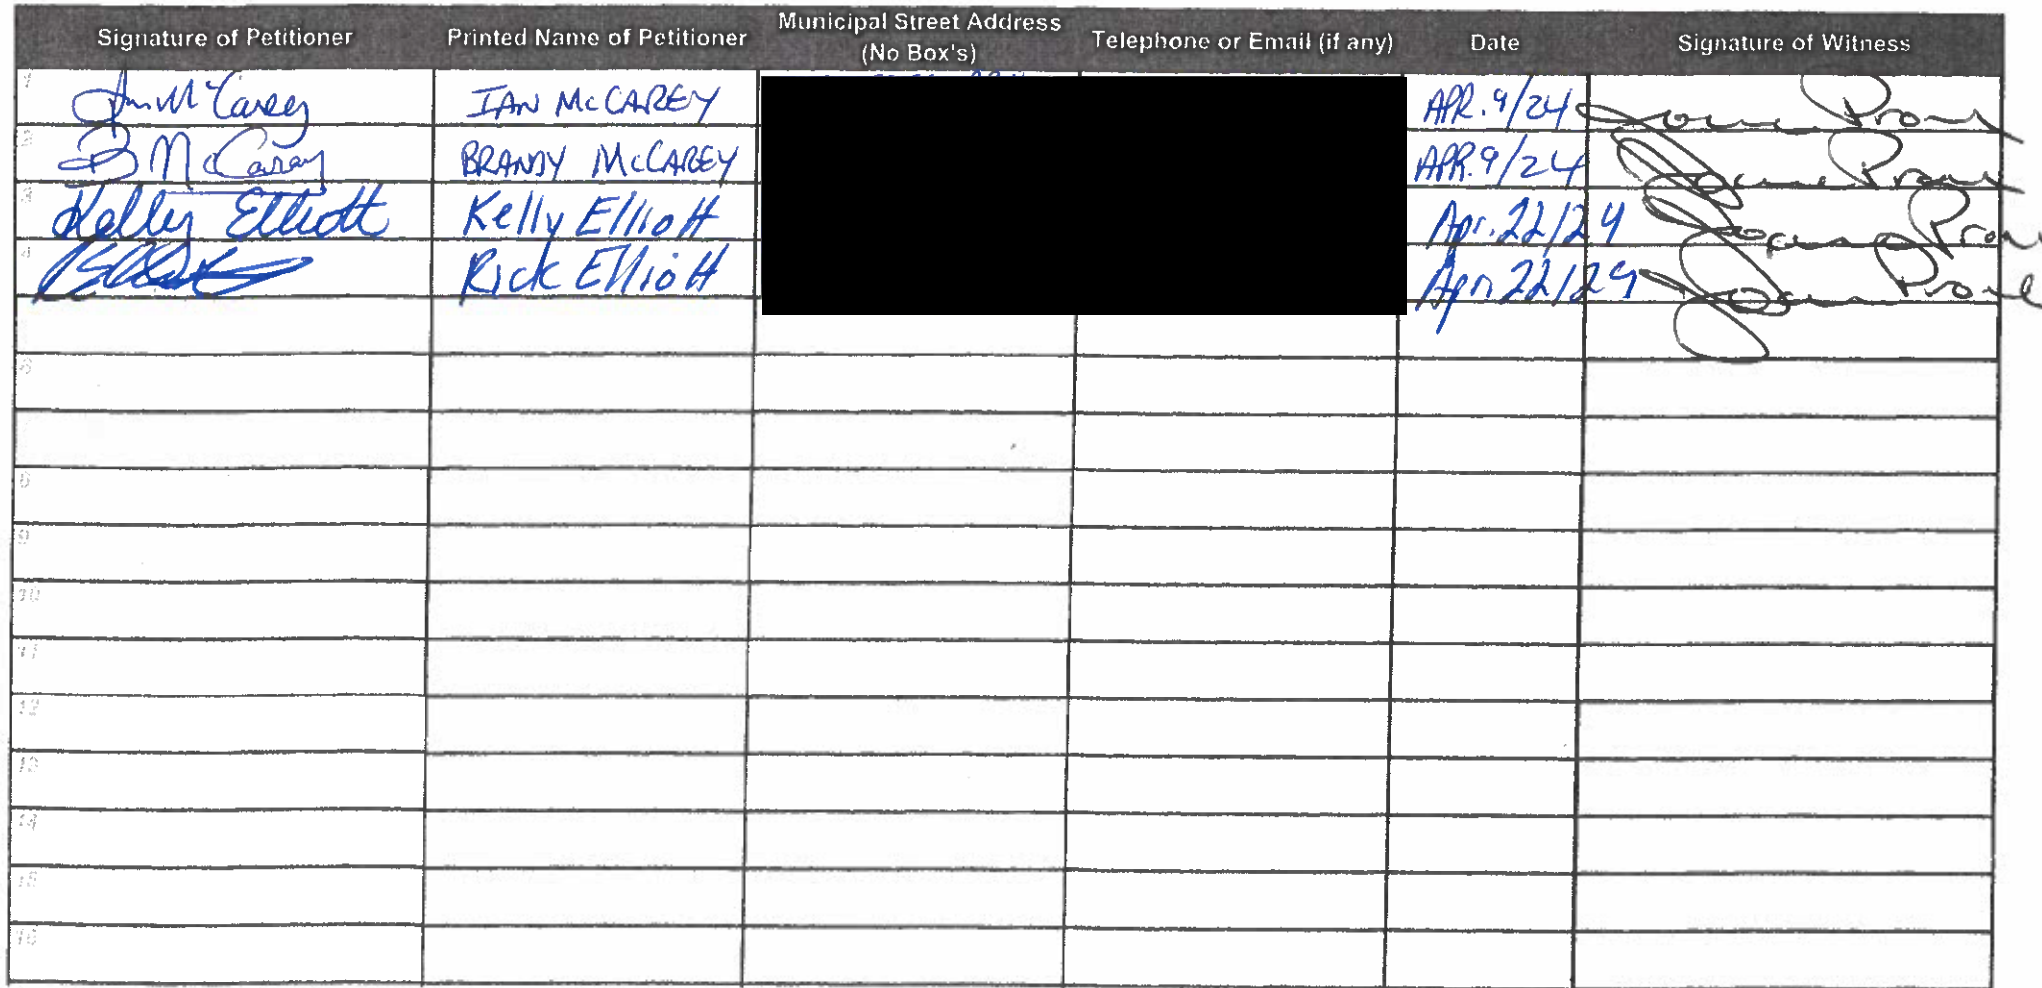 Signature of Petitioner Printed Name of Petitioner Municipal Street Address (No Box's) Telephone or Email (if any) Date Signature of Witness
1 Ian McCarey IAN McCAREY APR. 9/24
2 B McCarey BRANDY McCAREY APR. 9/24
3 Kelly Elliott Kelly Elliott Apr. 22/24
4 Rick Elliott Apr. 22/24
6
8
9
10
11
12
13
14
15
16